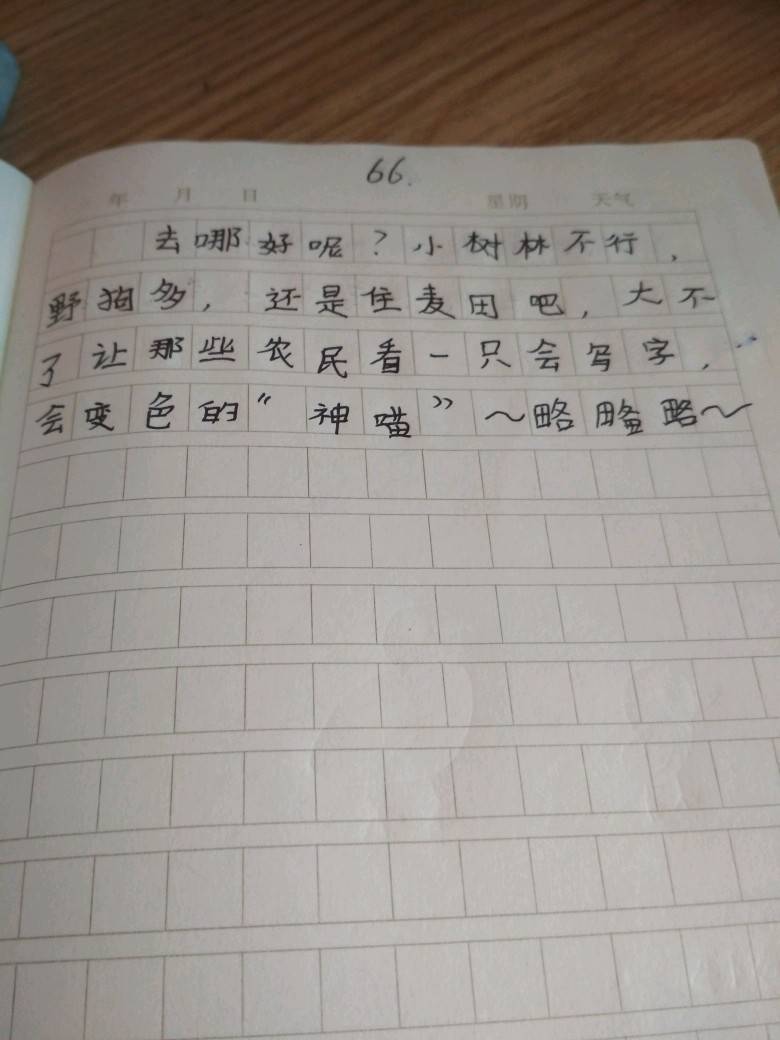 66.
年 月 日 星期 天气
去哪好呢？小树林不行，
野狗多，还是住麦田吧，大不
了让那些农民看一只会写字，
会变色的“神喵”～略略略～